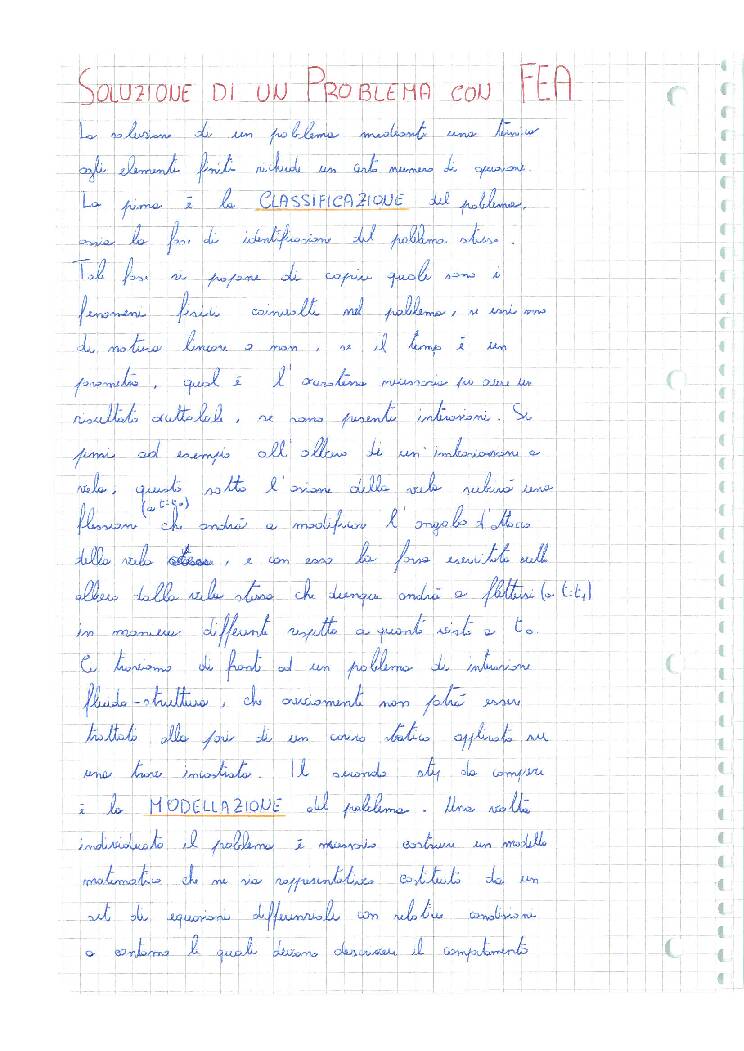 SOLUZIONE DI UN PROBLEMA CON FEA
La soluzione di un problema mediante una tecnica
agli elementi finiti richiede un certo numero di operazioni.
La prima è la CLASSIFICAZIONE del problema,
ossia la fase di identificazione del problema stesso.
Tale fase si propone di capire quali sono i
fenomeni fisici coinvolti nel problema, se essi sono
di natura lineare o non, se il tempo è un
parametro, qual è l'accuratezza necessaria per avere un
risultato accettabile, se sono presenti interazioni. Si
pensi ad esempio all'albero di un'imbarcazione a
vela, questo sotto l'azione della vela subirà una
flessione (a t=t0) che andrà a modificare l'angolo d'attacco
della vela stessa, e con esso la forza esercitata sull'
albero dalla vela stessa che dunque andrà a flettersi (a t=t1)
in maniera differente rispetto a quanto visto a t0.
Ci troviamo di fronte ad un problema di interazione
fluido-struttura, che ovviamente non potrà essere
trattato alla pari di un carico statico applicato su
una trave incastrata. Il secondo step da compiere
è la MODELLAZIONE del problema. Una volta
individuato il problema è necessario costruire un modello
matematico che ne sia rappresentativo costituito da un
set di equazioni differenziali con relative condizioni
a contorno le quali devono descrivere il comportamento